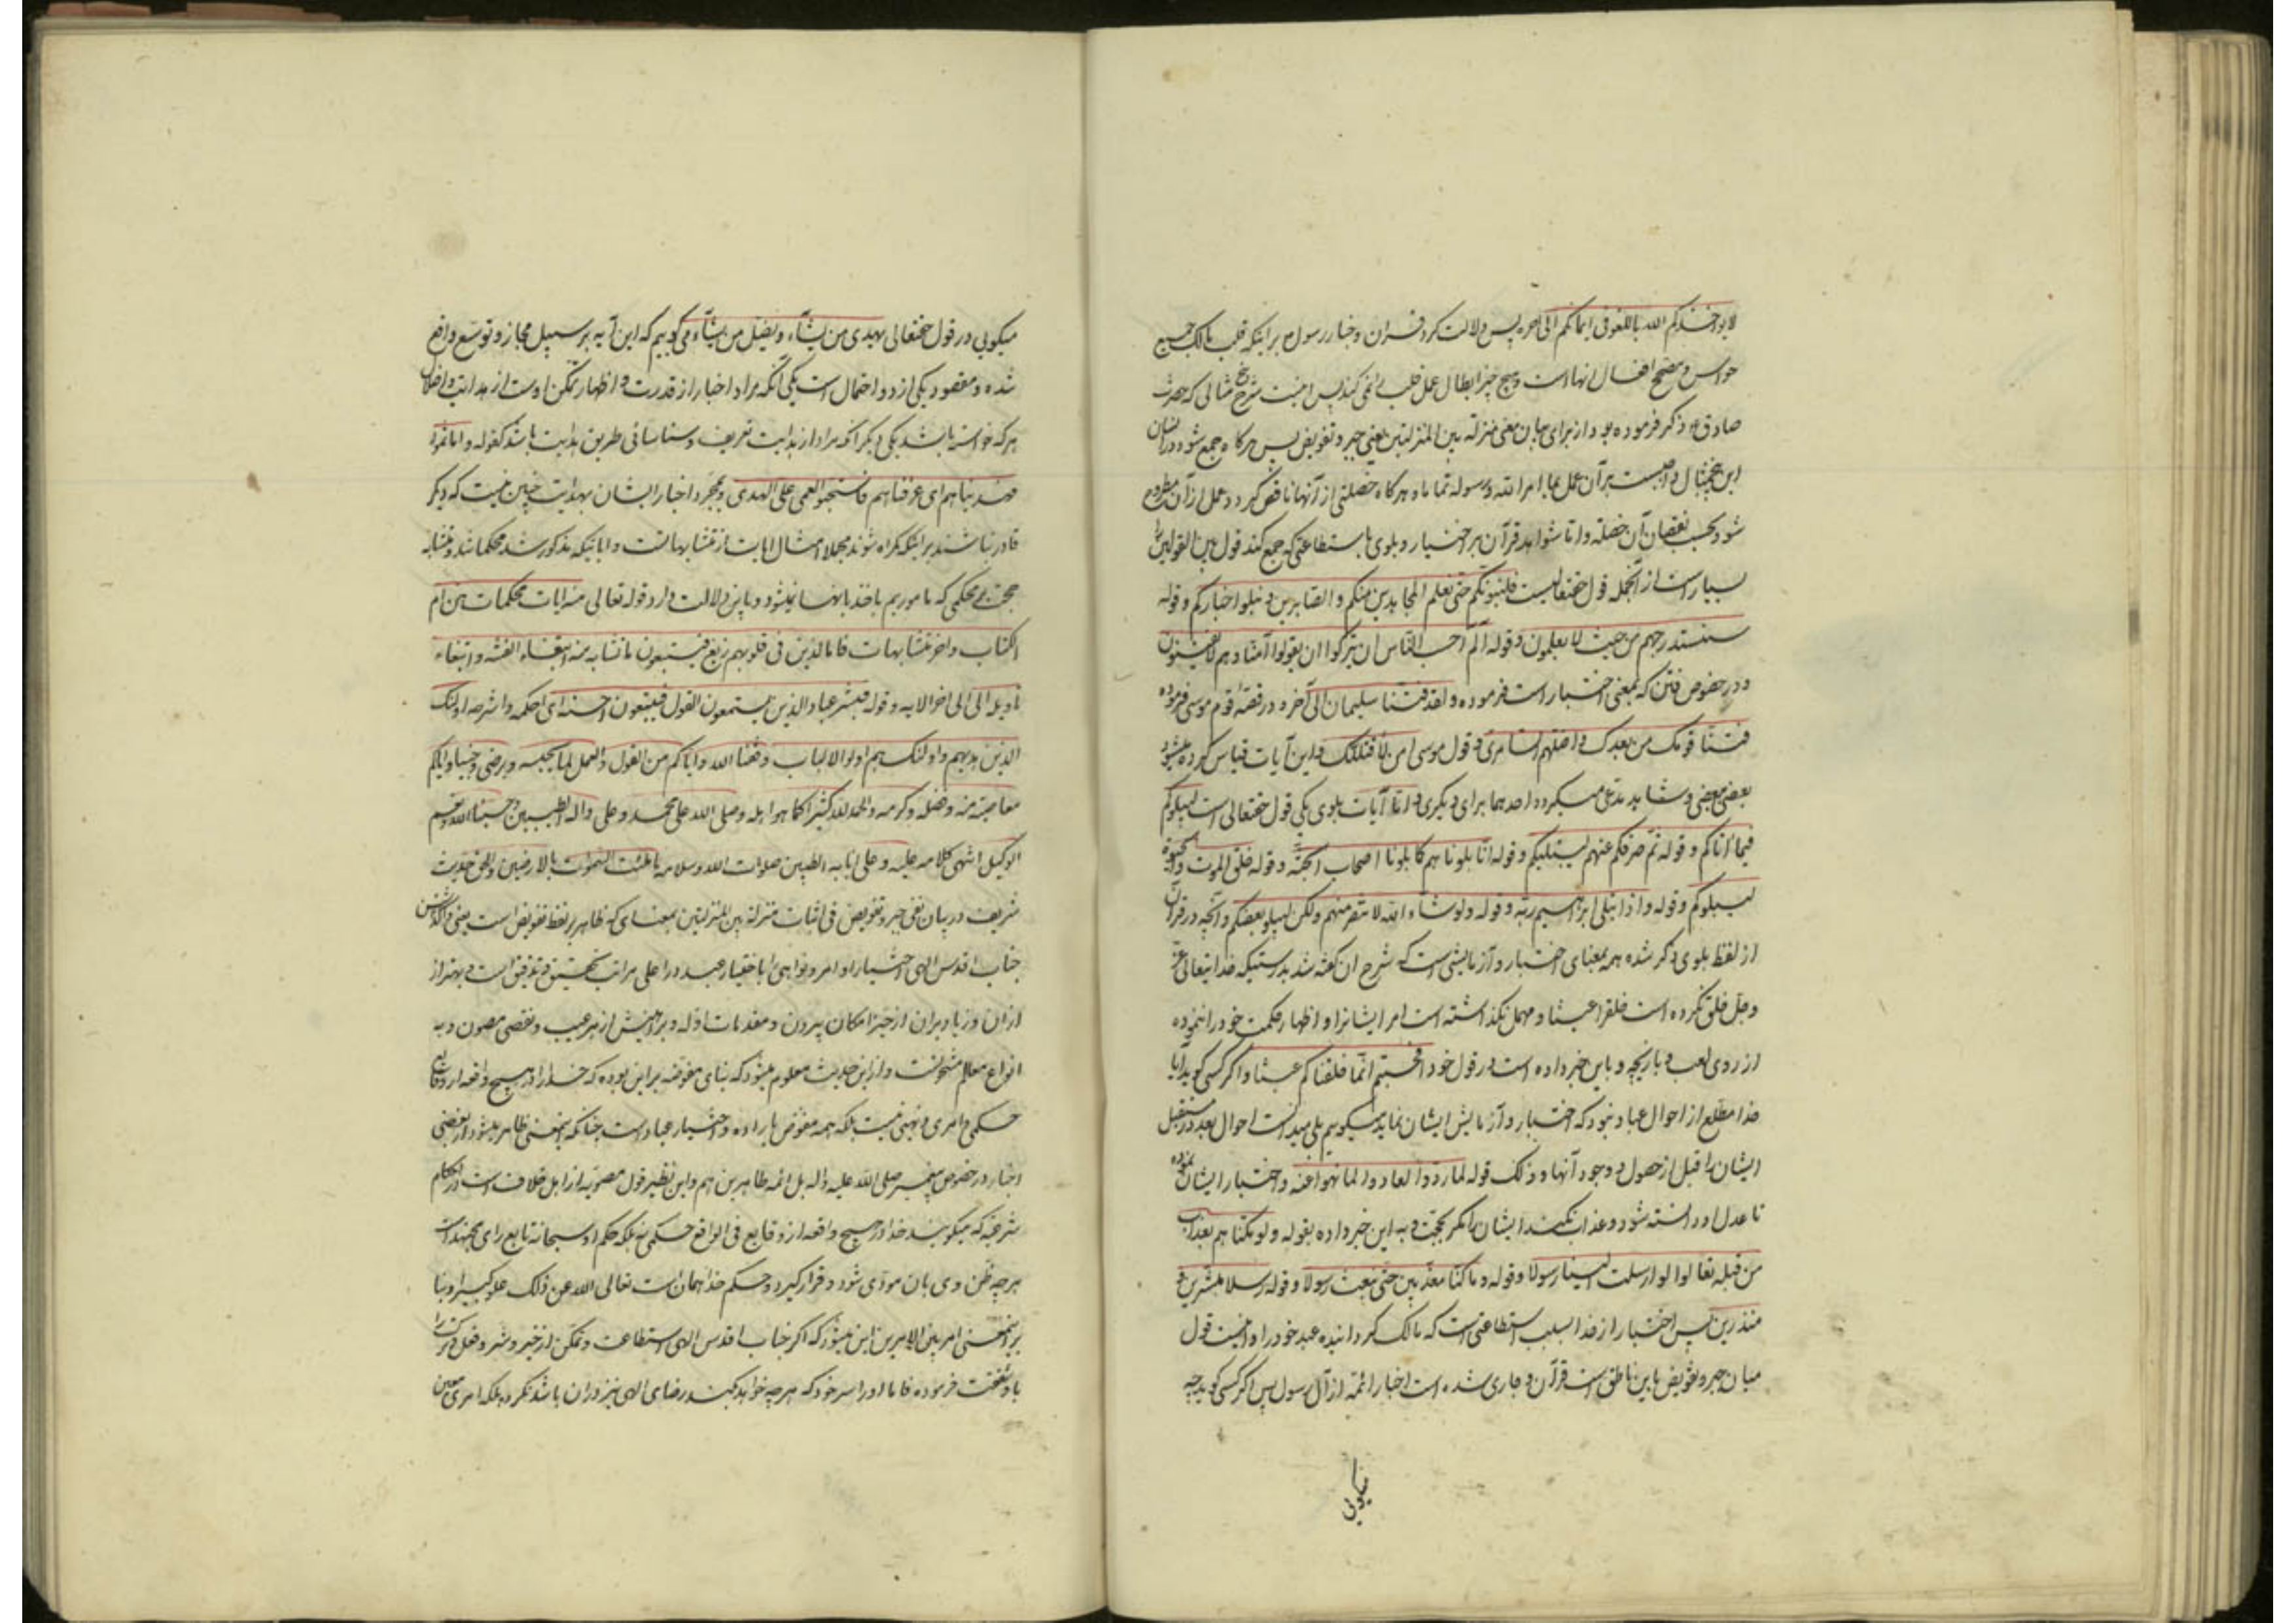 لا یؤاخذکم الله باللغو فی ایمانکم الی آخره پس دلالت کرد قران و اخبار رسول بر اینکه قلب مالک جمیع
حواس و مصحح افعال انها است و هیچ چیز ابطال عمل قلب را نمی کند پس اینست شرح مثالی که حضرت
صادق ع ذکر فرموده بود از برای بیان معنی منزلة بین المنزلتین یعنی جبر و تفویض پس هرکاه جمع شود در انسان
این مثال واجبست بر آن عمل بما امر الله و رسوله تماما و هرکاه خصلتی از آنها ناقص کردد عمل از آن مطروح
شود بحسب نقصان آن خصلة و اما شواهد قرآن بر اختبار و بلوی باستطاعتی که جمع کند قول بین القولین را
بسیار است از آنجمله قول حقتعالیست فلنبلونکم حتی نعلم المجاهدین منکم و الصابرین و نبلو اخبارکم و قوله
سنستدرجهم من حیث لا یعلمون و قوله الم احسب الناس ان یترکوا ان یقولوا آمنا و هم لا یفتنون
و در خصوص فتن که بمعنی اختبار است فرموده و لقد فتنا سلیمان الی آخره و در قصهٔ قوم موسی فرموده
فتنا قومک من بعدک و اضلهم السامری و قول موسی ان هی الا فتنتک و این آیات قیاس کرده میشود
بعضی ببعضی و شاهد مدعی میکردد احدهما برای دیکری و اما آیات بلوی یکی قول حقتعالی است لیبلوکم
فیما آتاکم و قوله ثم صرفکم عنهم لیبتلیکم و قوله انا بلوناهم کما بلونا اصحاب الجنة و قوله خلق الموت و الحیوة
لیبلوکم و قوله و اذ ابتلی ابراهیم ربه و قوله و لو شاء الله لانتصر منهم ولکن لیبلو بعضکم و آنچه در قرآن
از لفظ بلوی ذکر شده همه بمعنای اختبار و آزمایشی است که شرح ان کفته شد بدرستیکه خدایتعالی عز
و جل خلق نکرده است خلقرا عبثا و مهمل نکذاشته است امر ایشانرا و اظهار حکمت خود را ننموده
از روی لعب و بازیچه و باین خبر داده است در قول خود افحسبتم انما خلقناکم عبثا و اکر کسی کوید آیا
خدا مطلع از احوال عباد نبود که اختبار و آزمایش ایشان نماید میکوییم بلی میدانست احوال بعد در مستقبل
ایشان را قبل از حصول و وجود آنها و ذلک قوله لما ردوا لعادوا لما نهوا عنه و اختبار ایشان نموده
تا عدل او دانسته شود و عذاب نکند ایشان را مکر بحجت و به این خبر داده بقوله و لو اهلکناهم بعذاب
من قبله لقالوا لو ارسلت الینا رسولا و قوله و ما کنا معذبین حتی نبعث رسولا و قوله رسلا مبشرین و
منذرین پس اختبار از خدا بسبب استطاعتی است که مالک کردانیده عبد خود را و اینست قول
میان جبر و تفویض باین ناطق است قرآن و جاری شده است اخبار ائمه از آل رسول پس اکر کسی کوید چه
میکویی
میکویی در قول حقتعالی یهدی من یشآء و یضل من یشآء می کوییم که این آیه بر سبیل مجاز و توسع واقع
شده و مقصود یکی از دو احتمال است یکی آنکه مراد اخبار از قدرت و اظهار تمکن اوست از هدایت و اضلال
هر که خواسته باشد یکی دیکر آنکه مراد از هدایت تعریف و شناسائی طریق هدایت باشد کقوله و اما ثمود
فهدیناهم ای عرفناهم فاستحبوا العمی علی الهدی و بمجرد اخبار ایشان بهدایت چنین نیست که دیکر
قادر نباشند بر اینکه کمراه شوند مجملا امثال ایات از متشابهاتست و ایاتیکه مذکور شد محکماتند و متشابه
حجت بر محکمی که ماموریم باخذ بانها نمیشود و باین دلالت دارد قوله تعالی منه ایات محکمات هن ام
الکتاب و اخر متشابهات فاما الذین فی قلوبهم زیغ فیتبعون ما تشابه منه ابتغاء الفتنه و ابتغاء
تاویله الی اخر الایه و قوله فبشر عباد الذین یستمعون القول فیتبعون احسنه ای احکمه و اشرحه اولئک
الذین هدیهم و اولئک هم اولو الالباب وفقنا الله و ایاکم من القول و العمل لما یحبه و یرضی و جنبنا و ایاکم
معاصیه بمنه و فضله و کرمه و الحمد لله کثیرا کما هو اهله و صلی الله علی محمد و علی و اله الطیبین و حسبنا الله و نعم
الوکیل انتهی کلامه علیه و علی آبایه الطیبین صلوات الله و سلامه ما طبقت السموات بالارضین و الحق حدیث
شریف در بیان نفی جبر و تفویض فی اثبات منزلة بین المنزلتین بمعنای که ظاهر بر لفظ تفویض است یعنی واکذاشتن
جناب اقدس الهی اختیار اوامر و نواهی را باختیار عبد در اعلی مراتب تحقیق و تدقیق است و بهتر از
ازان و زیاد بران از حیز امکان بیرون و مقدمات ادله و براهینش از هر عیب و نقصی مصون و به
انواع معالم مشحونست و از این حدیث معلوم میشود که بنای مفوضه بر این بوده که خدا را در هیچ واقعه از وقایع
حکمی و امری و نهیی نیست بلکه همه مفوض باراده و اختیار عباد است چنانکه اینمعنی ظاهر میشود از بعضی
اخبار در خصوص پیغمبر صلی الله علیه و اله بل ائمه طاهرین هم و این نظیر قول مصوبه از اهل خلاف است در احکام
شرعیه که میکویند خدا در هیچ واقعه از وقایع فی الواقع حکمی نه بلکه حکم او سبحانه تابع رای مجتهد است
هر چه ظن وی بان مودی شود و قرار کیرد حکم خدا همان است تعالی الله عن ذلک علوا کبیرا و بنا
بر اینمعنی امر بین الامرین این میشود که اکر جناب اقدس الهی استطاعت و تمکن از خیر و شر و فعل و ترک را
باو شفقت فرموده فاما او را سر خود که هر چه خواهد بکند رضای الهی نیز دران باشد نکرده بلکه امری معین